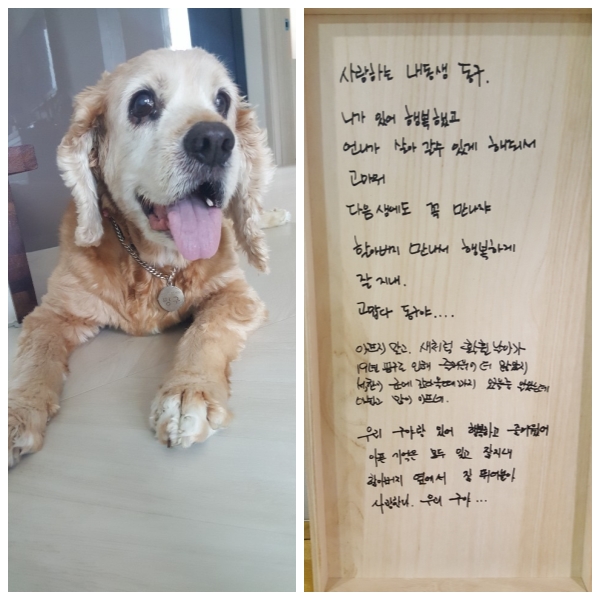 사랑하는 내동생 동구.
니가 있어 행복했고
언니가 살아 갈수 있게 해줘서
고마워
다음생에도 꼭 만나자
할아버지 만나서 행복하게
잘 지내.
고맙다 동구야....
아프지 말고. 새처럼 훨훨 날아가
우리 구야랑 있어 행복하고 즐거웠어
아픈 기억은 모두 잊고 잘지내
할아버지 옆에서 잘 뛰어놀아
사랑한다. 우리 구야...